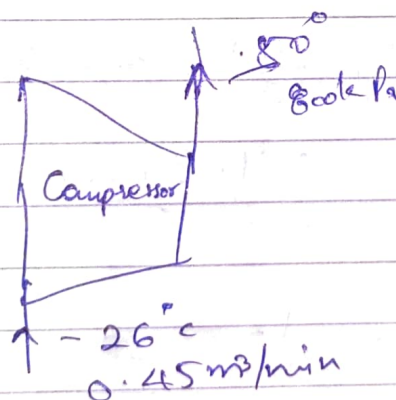 50°
800k Pa
Compressor
- 26°c
0.45 m³/min